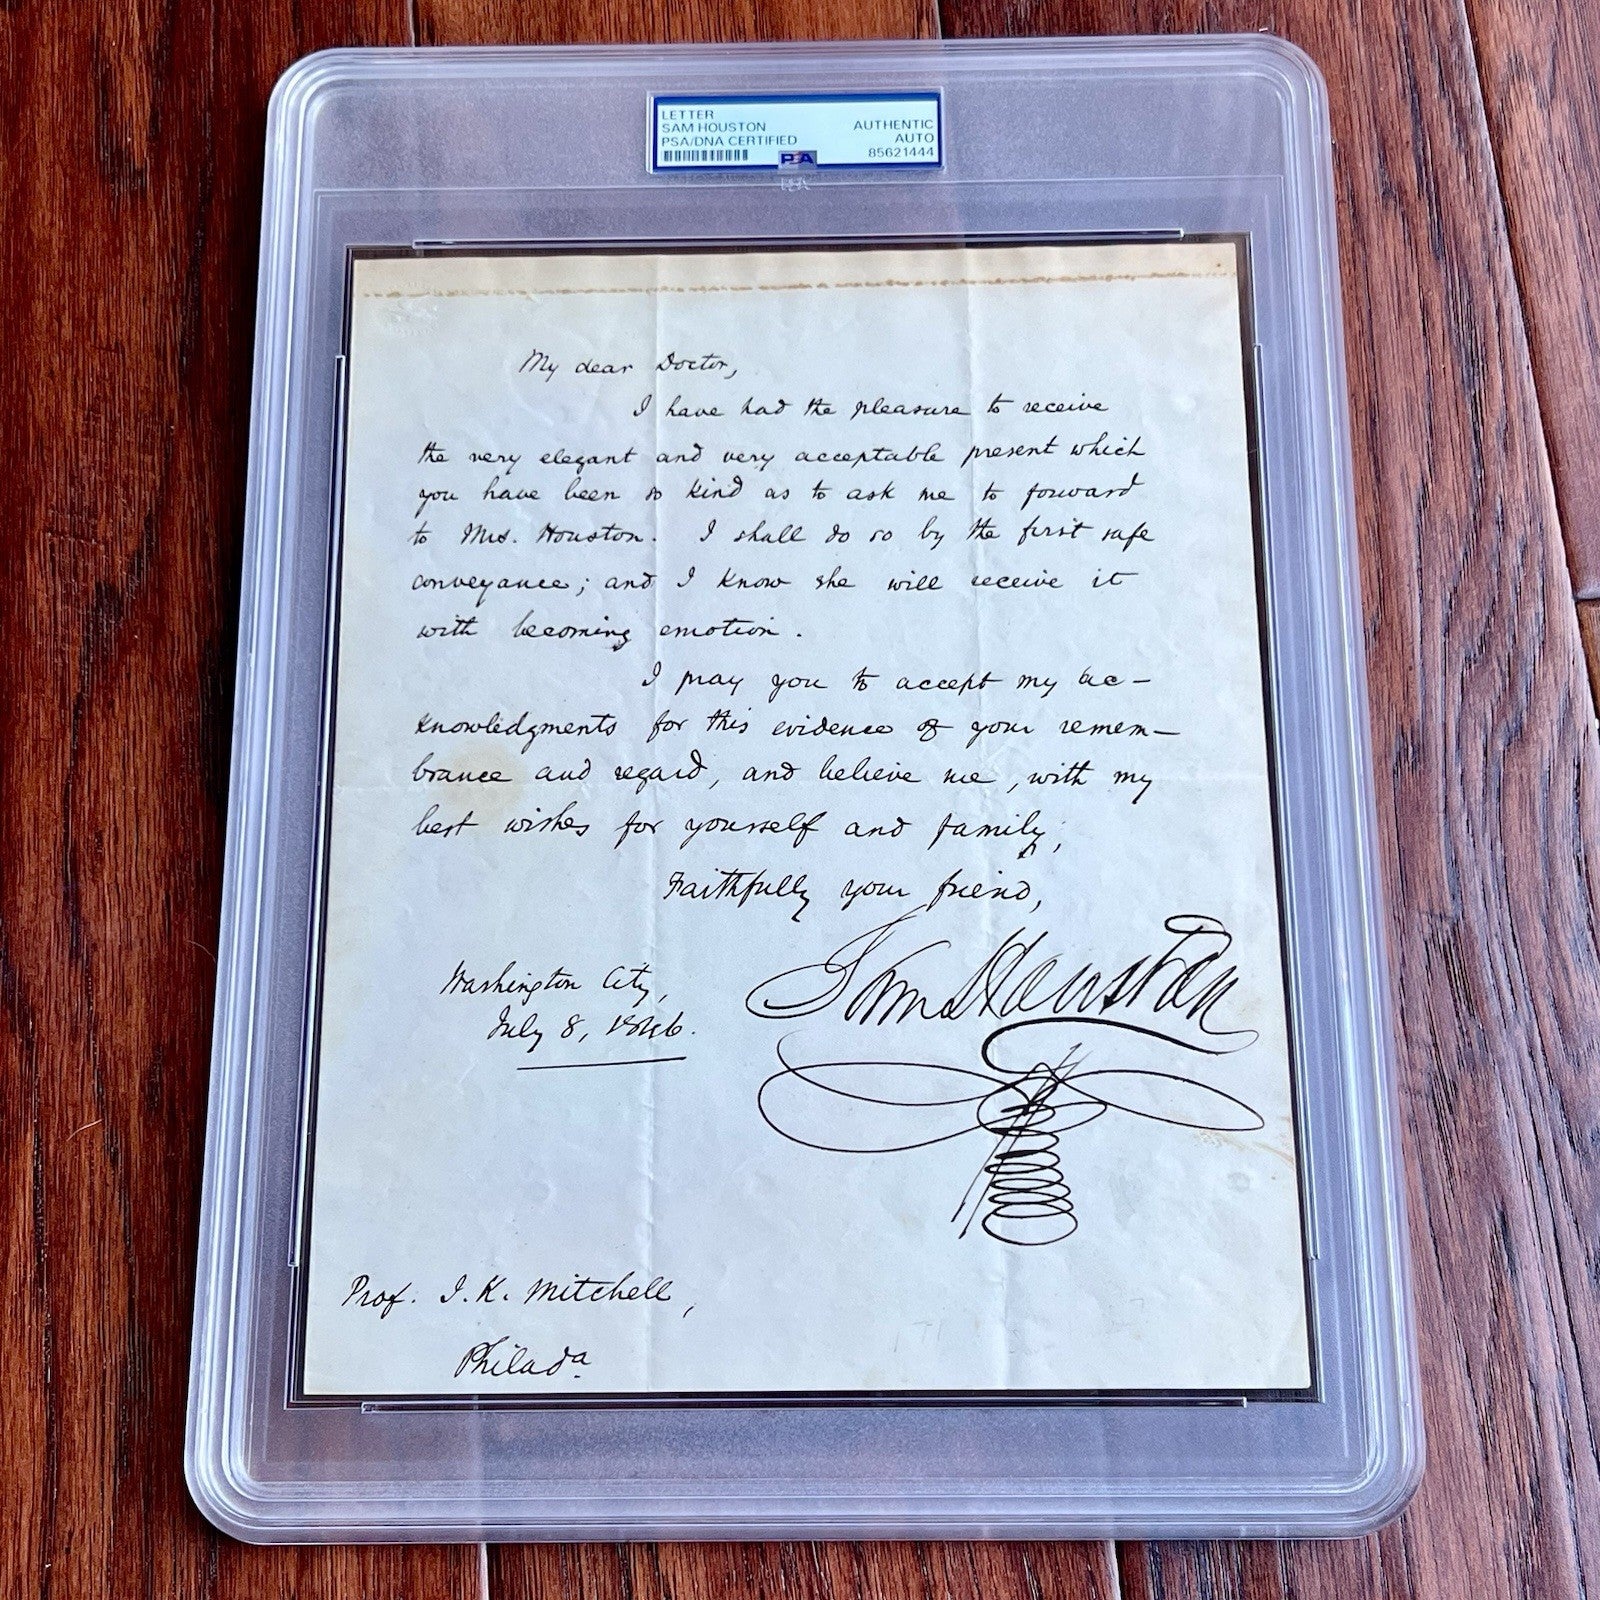 LETTER
SAM HOUSTON
PSA/DNA CERTIFIED
AUTHENTIC
AUTO
85621444
PSA
My dear Doctor,
I have had the pleasure to receive
the very elegant and very acceptable present which
you have been so kind as to ask me to forward
to Mrs. Houston. I shall do so by the first safe
conveyance; and I know she will receive it
with becoming emotion.
I pray you to accept my ac-
knowledgments for this evidence of your remem-
brance and regard, and believe me, with my
best wishes for yourself and family,
Faithfully your friend,
Sam Houston
Washington City,
July 8, 1846.
Prof. J. K. Mitchell,
Philada.